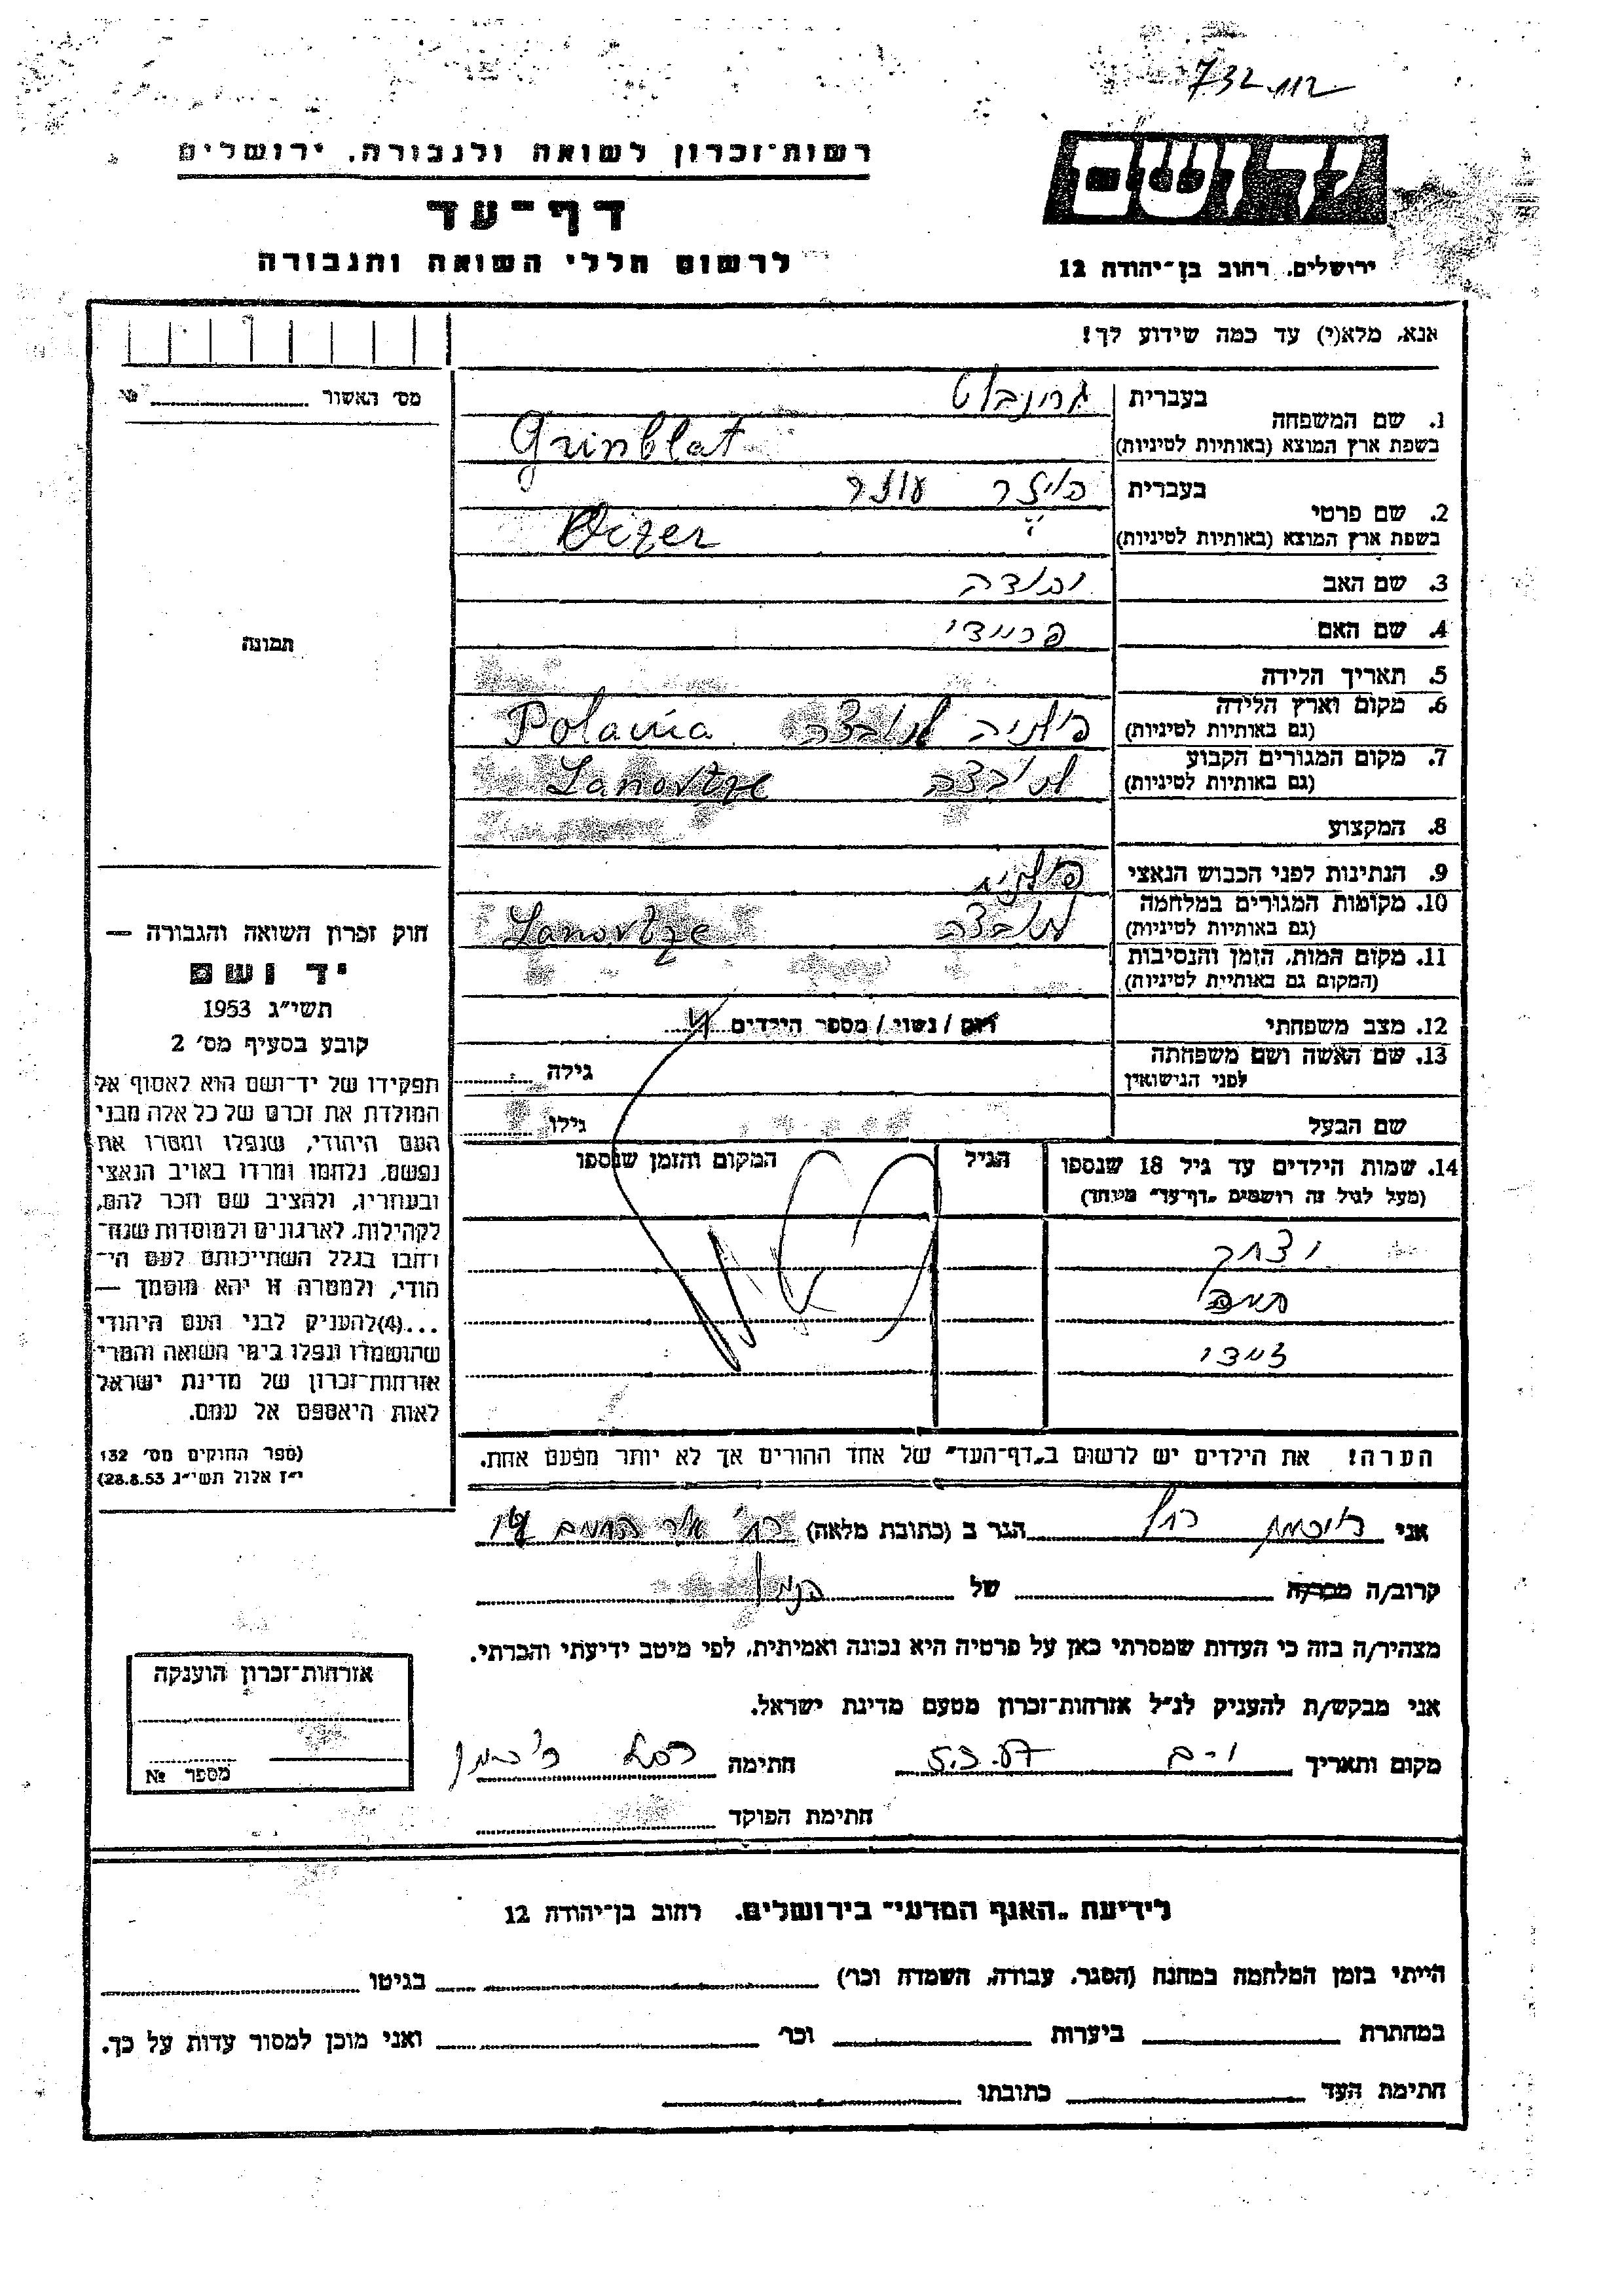 732 112
רשות־זכרון לשואה ולגבורה, ירושלים
יד ושם
דף־עד
לרשום חללי השואה והגבורה
ירושלים, רחוב בן־יהודה 12
אנא, מלא(י) עד כמה שידוע לך!
מס׳ האשור №
בעברית גרינבלט
1. שם המשפחה
בשפת ארץ המוצא (באותיות לטיניות) Grinblat
בעברית
2. שם פרטי
בשפת ארץ המוצא (באותיות לטיניות)
3. שם האב יהודה
4. שם האם
תמונה
5. תאריך הלידה
6. מקום וארץ הלידה
(גם באותיות לטיניות) Polania
7. מקום המגורים הקבוע
(גם באותיות לטיניות) לנובצה Lanovtze
8. המקצוע
9. הנתינות לפני הכבוש הנאצי
10. מקומות המגורים במלחמה
(גם באותיות לטיניות) לנובצה Lanovtze
11. מקום המות, הזמן והנסיבות
(המקום גם באותיות לטיניות)
12. מצב משפחתי רווק / נשוי / מספר הילדים
13. שם האשה ושם משפחתה
לפני הנישואין גילה
שם הבעל גילו
14. שמות הילדים עד גיל 18 שנספו הגיל המקום והזמן שנספו
(מעל לגיל זה רושמים „דף־עד״ מיוחד)
יצחק
חיים
זיידי
חוק זכרון השואה והגבורה —
יד ושם
תשי״ג 1953
קובע בסעיף מס׳ 2
תפקידו של יד־ושם הוא לאסוף אל
המולדת את זכרם של כל אלה מבני
העם היהודי, שנפלו ומסרו את
נפשם, נלחמו ומרדו באויב הנאצי
ובעוזריו, ולהציב שם וזכר להם,
לקהילות, לארגונים ולמוסדות שנח־
רבו בגלל השתייכותם לעם הי־
הודי, ולמטרה זו יהא מוסמך —
...(4)להעניק לבני העם היהודי
שהושמדו ונפלו בימי השואה והמרי
אזרחות־זכרון של מדינת ישראל
לאות היאספם אל עמם.
(ספר החוקים מס׳ 132
י״ז אלול תשי״ג 28.8.53)
הערה! את הילדים יש לרשום ב„דף־העד״ של אחד ההורים אך לא יותר מפעם אחת.
אני רחל הגר ב (כתובת מלאה)
קרוב/ה מכר/ה של
מצהיר/ה בזה כי העדות שמסרתי כאן על פרטיה היא נכונה ואמיתית, לפי מיטב ידיעתי והכרתי.
אני מבקש/ת להעניק לנ״ל אזרחות־זכרון מטעם מדינת ישראל.
מקום ותאריך י-ם 5.3.67 חתימה
חתימת הפוקד
אזרחות־זכרון הוענקה
מספר №
לידיעת „האגף המדעי״ בירושלים, רחוב בן־יהודה 12
הייתי בזמן המלחמה במחנה (הסגר, עבודה, השמדה וכו׳) בגיטו
במחתרת ביערות וכו׳ ואני מוכן למסור עדות על כך.
חתימת העד כתובתו